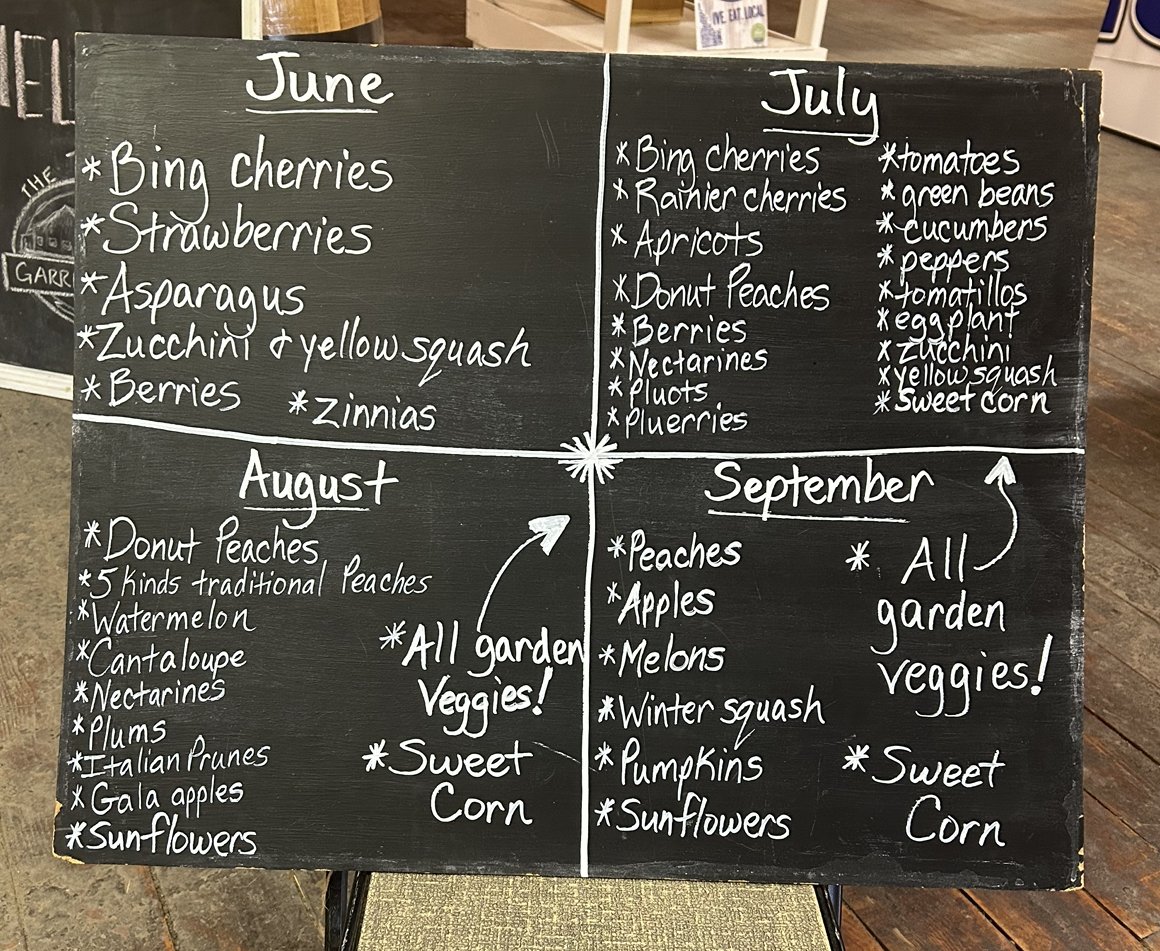 IVE. EAT. LOCAL
THE
June
*Bing cherries
*Strawberries
*Asparagus
*Zucchini & yellow squash
*Berries *Zinnias
July
*Bing cherries
*Rainier cherries
*Apricots
*Donut Peaches
*Berries
*Nectarines
*Pluots
*Pluerries
*tomatoes
*green beans
*cucumbers
*peppers
*tomatillos
*eggplant
*zucchini
*yellow squash
*Sweet corn
August
*Donut Peaches
*5 kinds traditional Peaches
*Watermelon
*Cantaloupe
*Nectarines
*Plums
*Italian Prunes
*Gala apples
*Sunflowers
*All garden
Veggies!
*Sweet
Corn
September
*Peaches
*Apples
*Melons
*Winter squash
*Pumpkins
*Sunflowers
* All
garden
veggies!
*Sweet
Corn